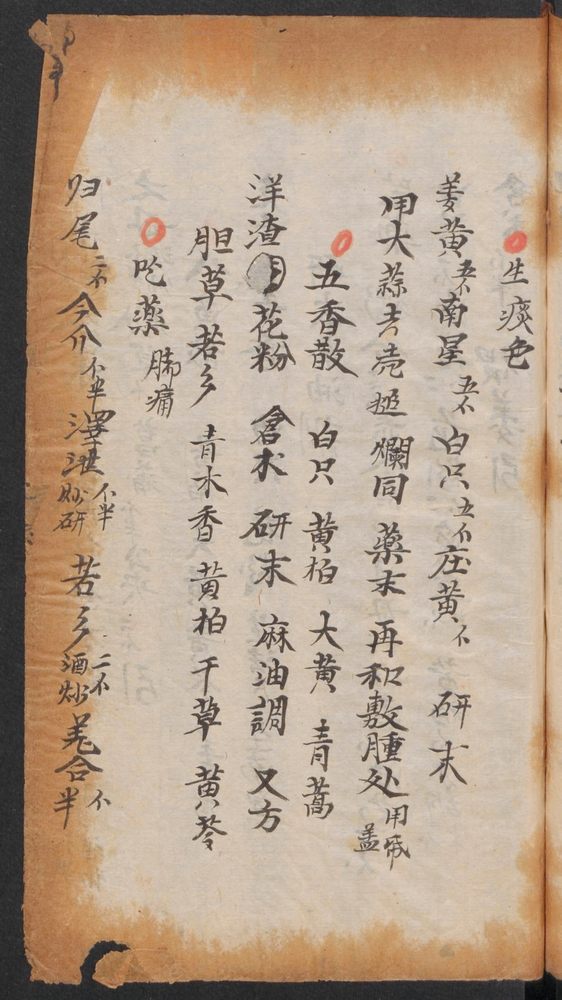 生痰色
姜黄五不南星五不白只五不庄黄不 研末
用大蒜去壳搥爛同藥末再和敷腫处用紙盖
五香散 白只 黄柏 大黄 青蒿
洋渣 花粉 倉术 研末 麻油調 又方
胆草 若乡 青木香 黄柏 干草 黄苓
吃藥 腸痛
归尾二不 今介不半 澤 不半 炒研 若乡二不酒炒 羗合不半